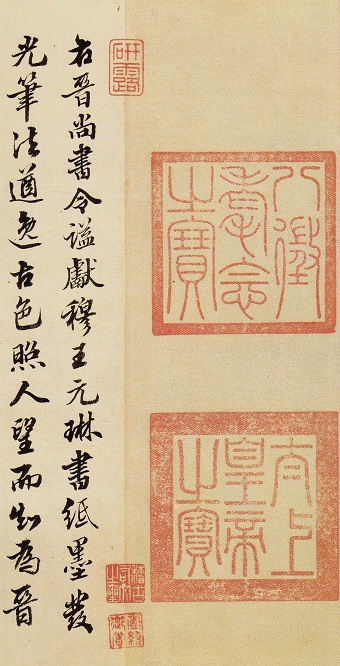 八徵耄念之寶
太上皇帝之寶
研露
右晉尚書令謚獻穆王元琳書紙墨發
光筆法遒逸古色照人望而知為晉
稽古右文之璽